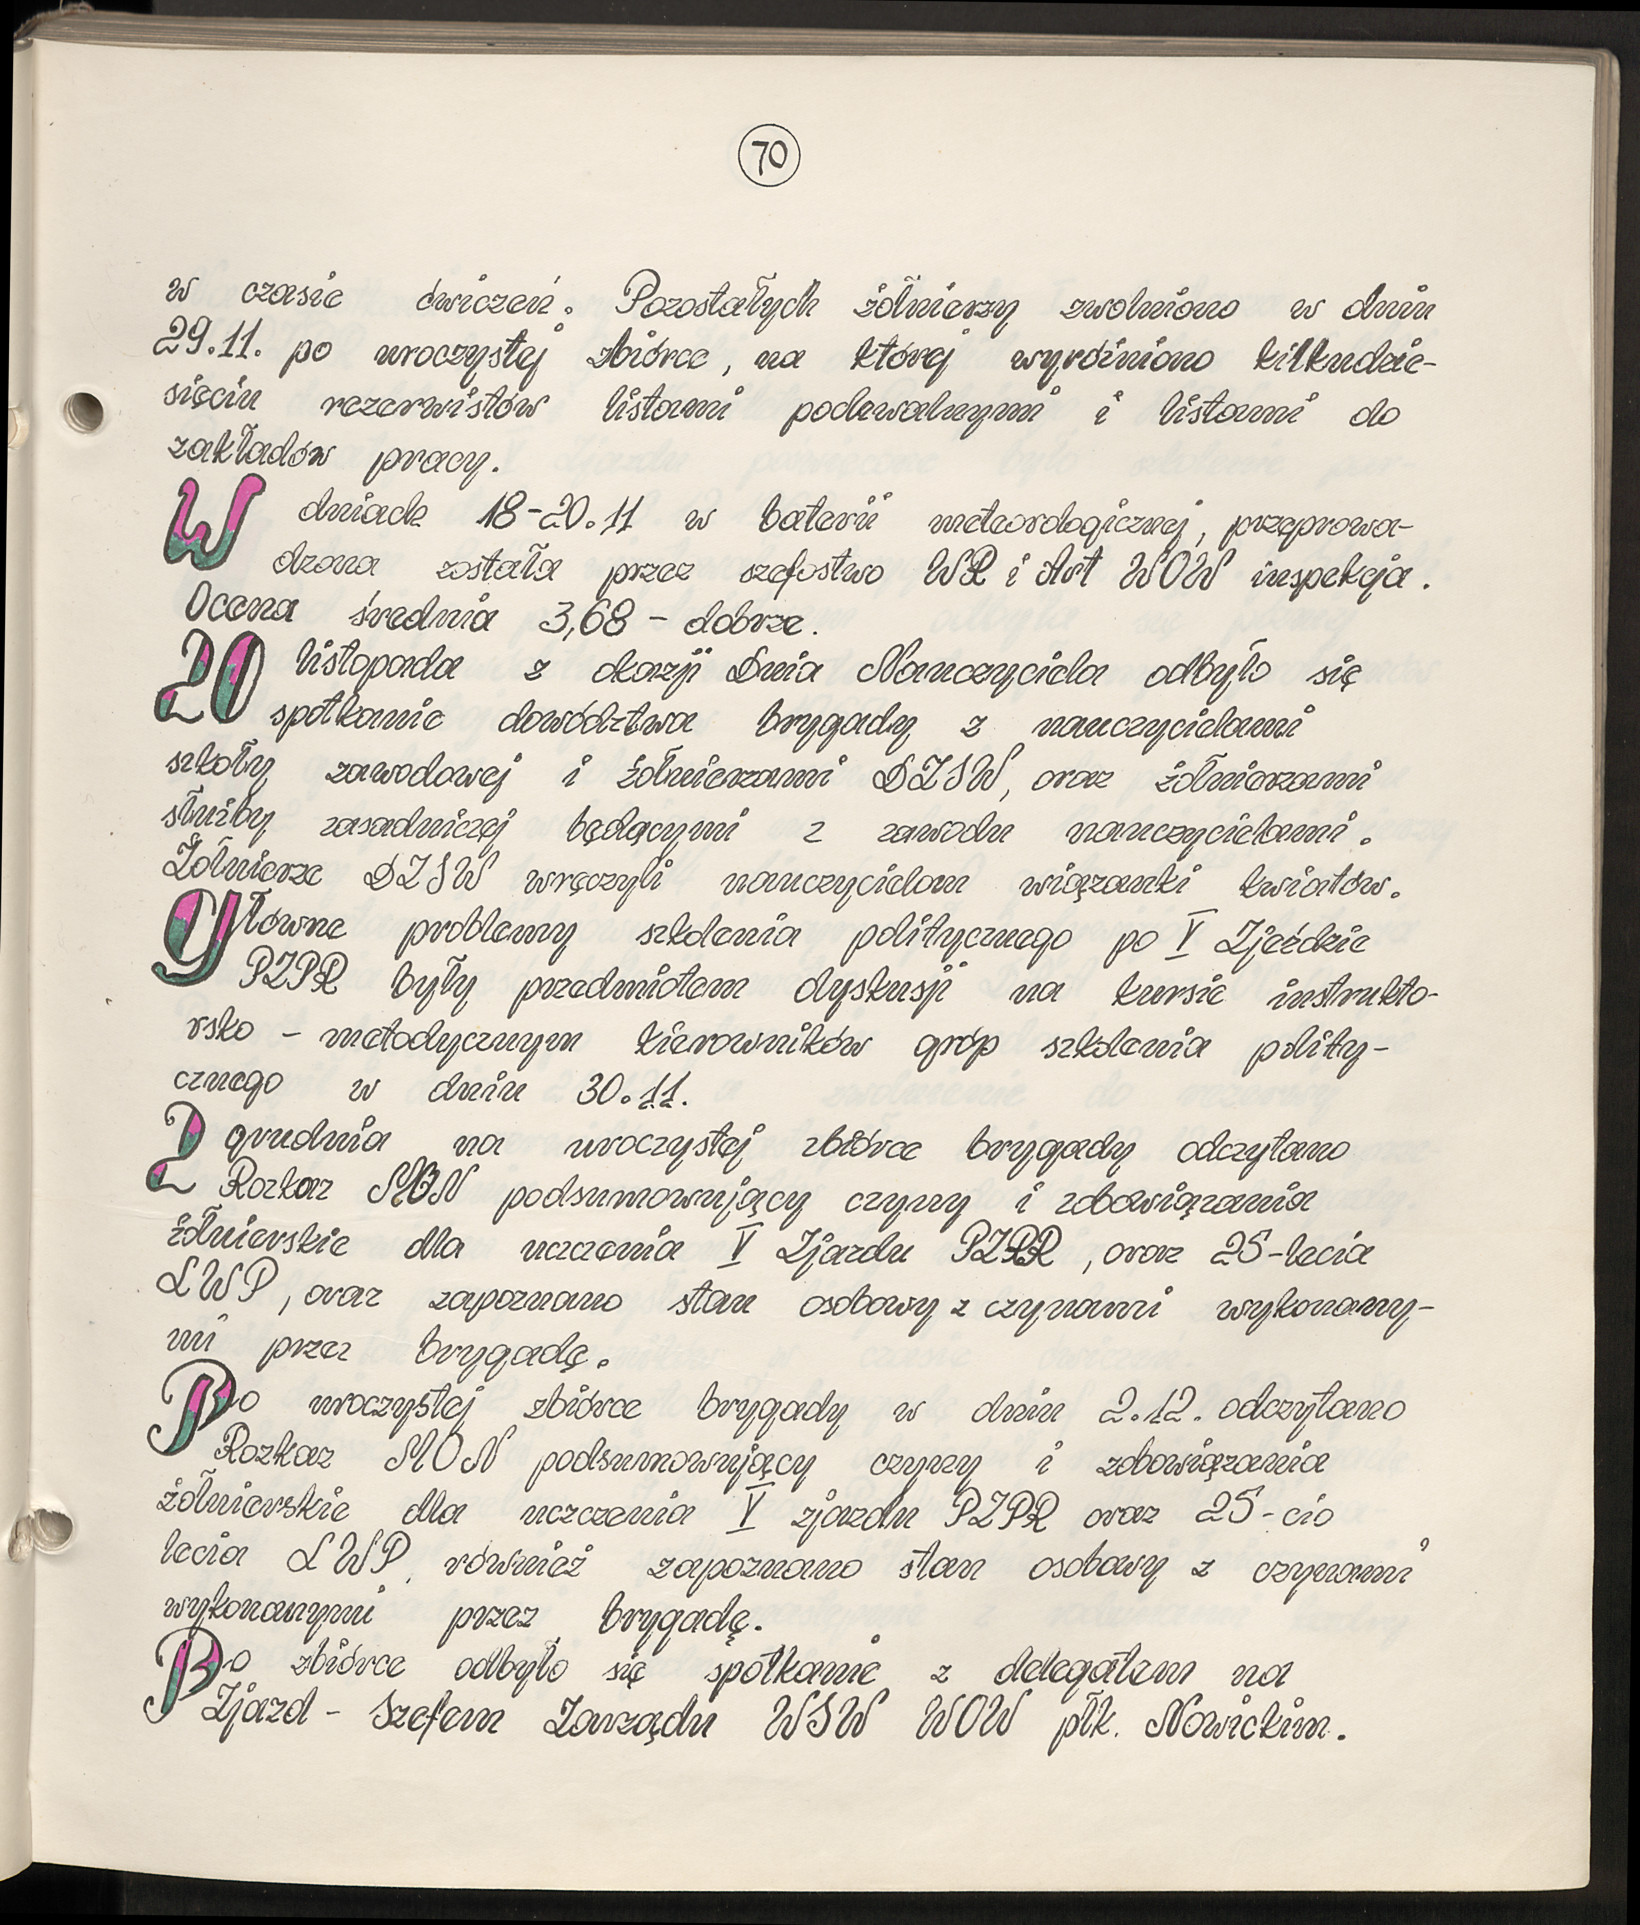 70
w czasie ćwiczeń. Pozostałych żołnierzy zwolniono w dniu
29.11. po uroczystej zbiórce, na której wyróżniono kilkudzie-
sięciu rezerwistów listami pochwalnymi i listami do
zakładów pracy.
W dniach 18-20.11 w baterii meteorologicznej, przeprowa-
dzona została przez szefostwo WR i Art WOW inspekcja.
Ocena średnia 3,68 - dobrze.
20 listopada z okazji Dnia Nauczyciela odbyło się
spotkanie dowództwa brygady z nauczycielami
szkoły zawodowej i żołnierzami DZSW, oraz żołnierzami
służby zasadniczej będącymi z zawodu nauczycielami.
Żołnierze DZSW wręczyli nauczycielom wiązanki kwiatów.
Główne problemy szkolenia politycznego po V Zjeździe
PZPR były przedmiotem dyskusji na kursie instrukto-
rsko - metodycznym kierowników gróp szkolenia polity-
cznego w dniu 30.11.
2 grudnia na uroczystej zbiórce brygady odczytano
Rozkaz MON podsumowujący czyny i zobowiązania
żołnierskie dla uczczenia V Zjazdu PZPR, oraz 25-lecia
LWP, oraz zapoznano stan osobowy z czynami wykonany-
mi przez brygadę.
Po uroczystej zbiórce brygady w dniu 2.12. odczytano
Rozkaz MON podsumowujący czyny i zobowiązania
żołnierskie dla uczczenia V zjazdu PZPR oraz 25-cio
lecia LWP, również zapoznano stan osobowy z czynami
wykonanymi przez brygadę.
Po zbiórce odbyło się spotkanie z delegatem na
Zjazd - Szefem Zarządu WSW WOW płk. Nowickim.